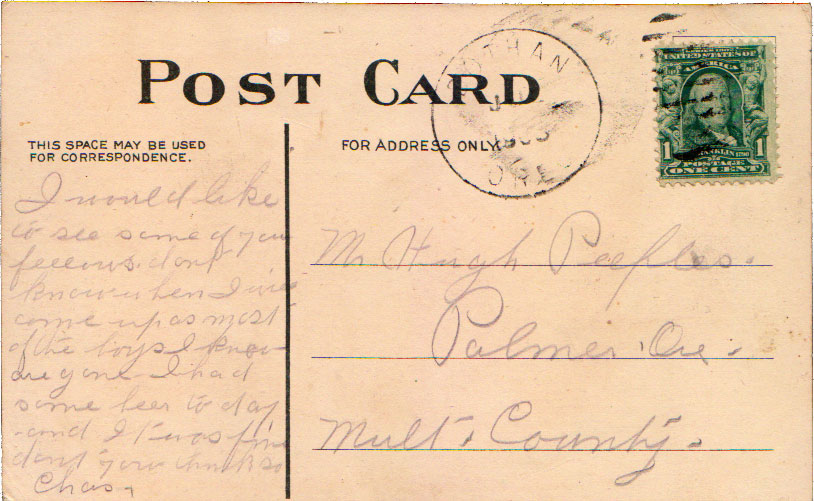 POST CARD
THIS SPACE MAY BE USED
FOR CORRESPONDENCE.
FOR ADDRESS ONLY.
ORE
UNITED STATES OF
AMERICA
FRANKLIN
1 1
POSTAGE
ONE CENT
I would like
to see some of you
fellows dont
know when I will
come up as most
of the boys I know
are gone I had
some beer to day
and It was fine
dont you think so
Chas.
Mr Hugh Peeples.
Palmer, Ore.
Mult. County.